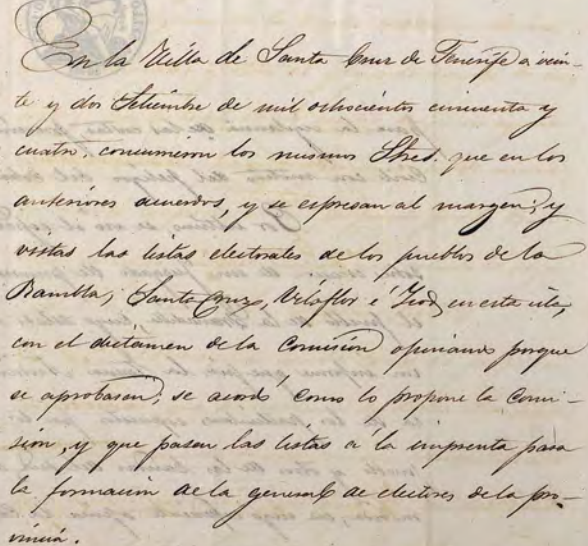 En la Villa de Santa Cruz de Tenerife a vein-
te y dos Setiembre de mil ochocientos cincuenta y
cuatro, concurrieron los mismos Sres. que en los
anteriores acuerdos, y se espresan al margen; y
vistas las listas electorales de los pueblos de la
Rambla, Santa Cruz, Vilaflor é Icod, en esta isla,
con el dictamen de la Comision opinando porque
se aprobasen; se acordó como lo propone la Comi-
sion, y que pasen las listas á la imprenta para
la formacion de la general de electores de la pro-
vincia.